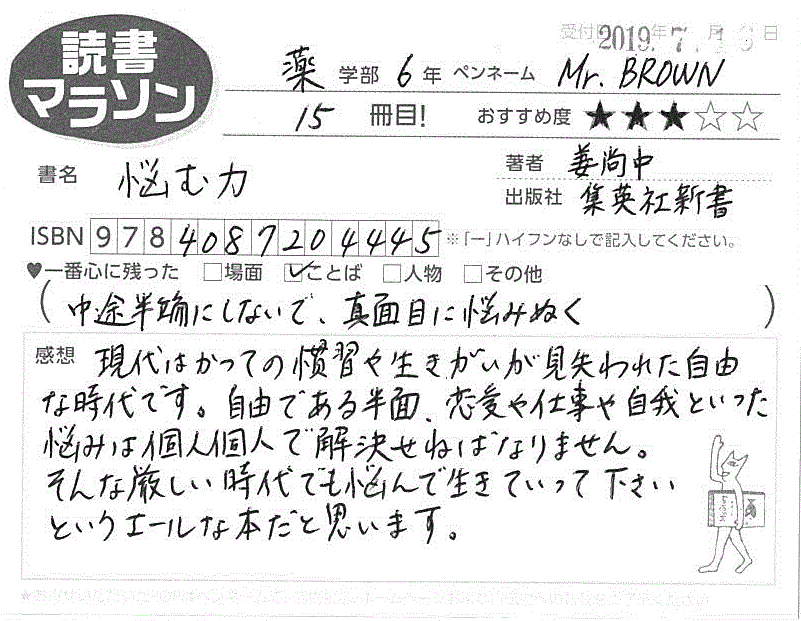 読書
マラソン
受付日 2019年 7月 日
薬 学部 6 年 ペンネーム Mr. BROWN
15 冊目! おすすめ度 ★★★☆☆
書名 悩む力
著者 姜尚中
出版社 集英社新書
ISBN 9784087204445 ※「ー」ハイフンなしで記入してください。
♥一番心に残った □場面 ☑ことば □人物 □その他
(中途半端にしないで、真面目に悩みぬく)
感想 現代はかつての慣習や生きがいが見失われた自由
な時代です。自由である半面、恋愛や仕事や自我といった
悩みは個人個人で解決せねばなりません。
そんな厳しい時代でも悩んで生きていって下さい
というエールな本だと思います。